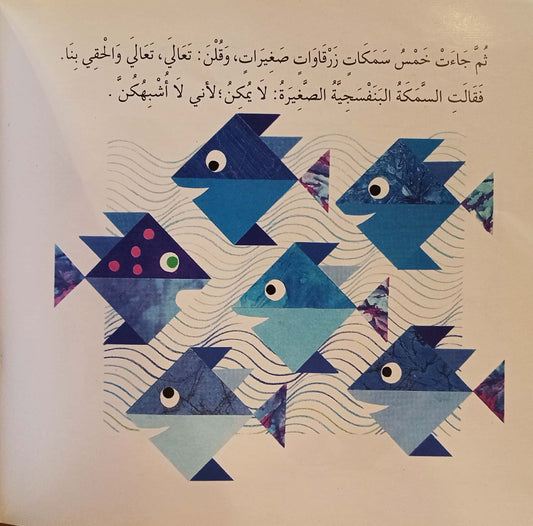 ثُمَّ جَاءَتْ خَمْسُ سَمَكَاتٍ زَرْقَاوَاتٍ صَغِيرَاتٍ، وَقُلْنَ: تَعَالَيْ، تَعَالَيْ وَالْحَقِي بِنَا.
فَقَالَتِ السَّمَكَةُ البَنَفْسَجِيَّةُ الصَّغِيرَةُ: لَا يُمكنُ؛ لأني لَا أُشْبِهُكُنَّ.